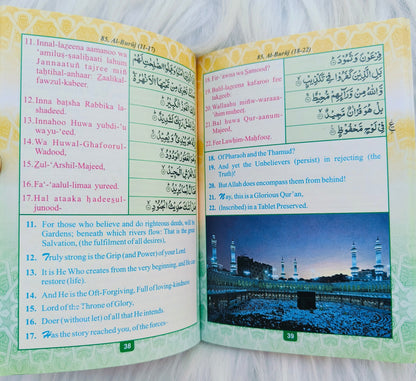 85. Al-Burūj (11-17)
11. Innal-lazeena aamanoo wa
'amiluṣ-ṣaaliḥaati lahum
Jannaatuñ tajree miñ
taḥtihal-anhaar Zaalikal-
fawzul-kabeer.
12. Inna baṭsha Rabbika la-
shadeed.
13. Innahoo Huwa yubdi-'u
wa yu-'eed.
14. Wa Huwal-Ghafoorul-
Wadood,
15. Zul-'Arshil-Majeed,
16. Fa'-'aalul-limaa yureed.
17. Hal ataaka ḥadeesul-
junood-
الْفَوْزُ الْكَبِيرُ
11. For those who believe and do righteous deeds, will be
Gardens; beneath which rivers flow: That is the great
Salvation, (the fulfilment of all desires),
12. Truly strong is the Grip (and Power) of your Lord.
13. It is He Who creates from the very beginning, and He can
restore (life).
14. And He is the Oft-Forgiving, Full of loving-kindness
15. Lord of the Throne of Glory,
16. Doer (without let) of all that He intends.
17. Has the story reached you, of the forces-
38
85. Al-Burūj (18-22)
18. Fir-'awna wa Ṣamood?
19. Balil-lazeena kafaroo fee
takzeeb.
20. Wallaahu miñw-waraa-
'ihim muḥeeṭ.
21. Bal huwa Qur-aanum-
Majeed,
22. Fee Lawḥim-Maḥfooẓ.
فِرْعَوْنَ وَثَمُودَ
بَلِ الَّذِينَ كَفَرُوا فِي تَكْذِيبٍ
وَاللَّهُ مِنْ وَرَائِهِمْ مُحِيطٌ
بَلْ هُوَ قُرْآنٌ مَجِيدٌ
فِي لَوْحٍ مَحْفُوظٍ
18. Of Pharaoh and the Thamud?
19. And yet the Unbelievers (persist) in rejecting (the
Truth)!
20. But Allah does encompass them from behind!
21. Nay, this is a Glorious Qur'an,
22. (Inscribed) in a Tablet Preserved.
39